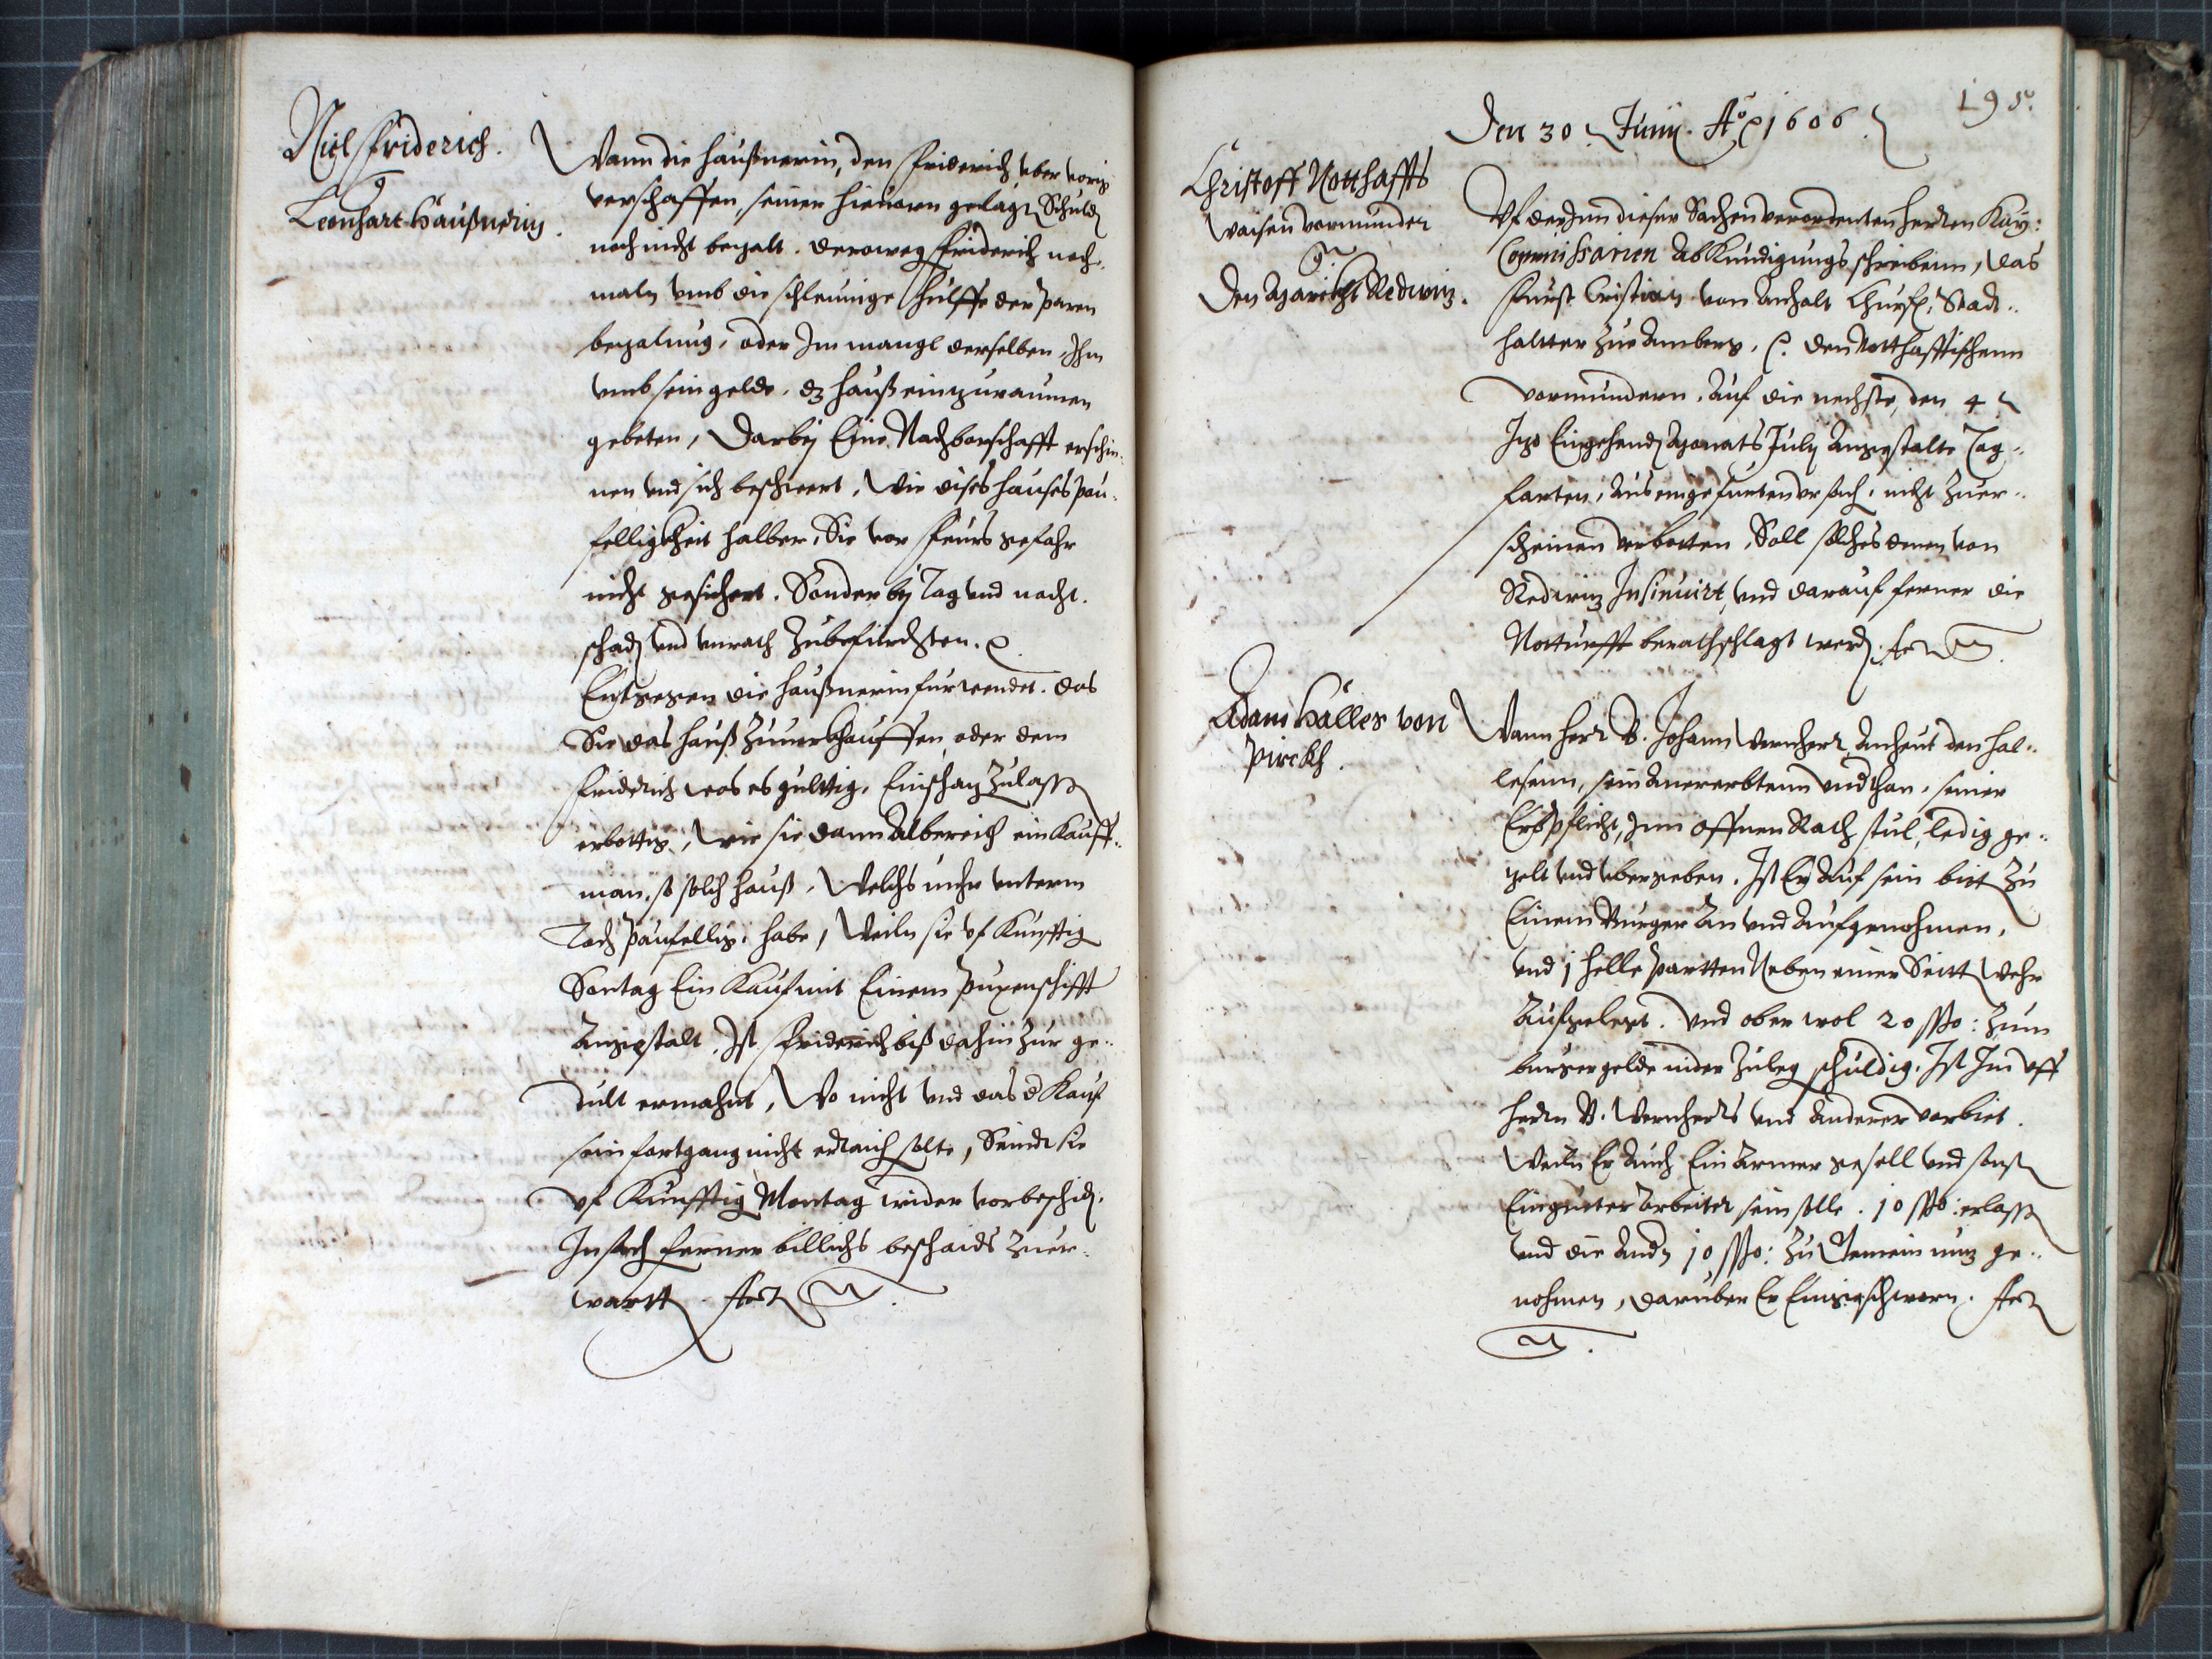 Nicl Friderich.
g
Leonhart Haußnerin.
Wann die Haußnerin, den Friderich vber vorig
verschaffen, seiner hieuorn geclagtn Schuld
noch nicht bezalt. Derowegn Friderich noch-
maln vmb die schleunige hülffe der paren
bezalung, oder Im mangl derselben, Ihm
vmb sein geldt, dz Hauß einzuraumen
gebeten, Darbej Eine Nachborschafft erschin-
nen vnd sich beschwert, Wie dises Hauses pau-
felligkheit halber, Sie vor Feurs gefahr
nicht gesichert. Sonder bej Tag vnd nacht.
schadn vnd vnrath Zubefürchten.
Entgegen die Haußnerin furwendet. das
Sie das Hauß Zuuerkhauffen, oder dem
Friderich was es gulttig, Einschazn Zulassn
erbottig, Wie sie dann Albereith ein Kauff-
man, so solch Hauß, Welchs mehr vnterm
Tach paufellig, habe, Weiln sie vf Künfftig
Sontag Ein Kauf mit Einem
Angestalt, Ist Friderich biß dahin Zur ge-
dult ermahnt, Wo nicht vnd das d Kauf
sein fortgang nicht erraich solte, Seindt sie
vf Künfftig Montag wider vorbeschidn.
In sach ferner billichs beschaids Zuer-
wartten.
195.
Den 30. Junij. Ao 1606.
Christoff Notthaffts
Waisen vormunder
g
Den Marckht Redwiz.
Vf der Inn dieser Sachen verordenten Herrn Kay:
Commissarien Abkündigungs schreiben, Das
Fürst Cristian von Anhalt Churf. Stadt-
haltter Zue Amberg, den Notthafftischenn
vormündern, Auf die nechste, den 4
Jzo Eingehendn Monats Julij Angestalte Tag-
farten, Aus eingefurten vrsach, nicht Zuer-
scheinen verbotten, Soll solches denen von
Redwiz Insinuirt, vnd darauf ferner die
Notturfft berathschlagt werdn.
Adam Haller von
Pirckh.
Wann Herr B. Johann Wernherr Anheut den Hal-
lesenn, sein Anererbtenn vnderthan, seiner
Erbpflicht, Inn offnen Rath stul, ledig ge-
zelt vnd vbergeben. Ist Er Auf sein bitt Zu
Einem Burger An vnd Aufgenohmen,
vnd 1 Helle partten Neben einer Seitt Wehr
Aufgelegt. Vnd ober wol 20 ßo: Zum
burgergelde nider Zulegn schuldig. Ist Im vff
Herrn B. Wernherrs vnd Anderer vorbit.
Weiln Er Auch Ein Armer gesell vnd sonst
Ein guter Arbeiter sein solle. 10 ßo: erlassn
vnd die Andn 10 ßo: Zu Gemein nuz ge-
nohmen, Daruber Er Eingeschworn.